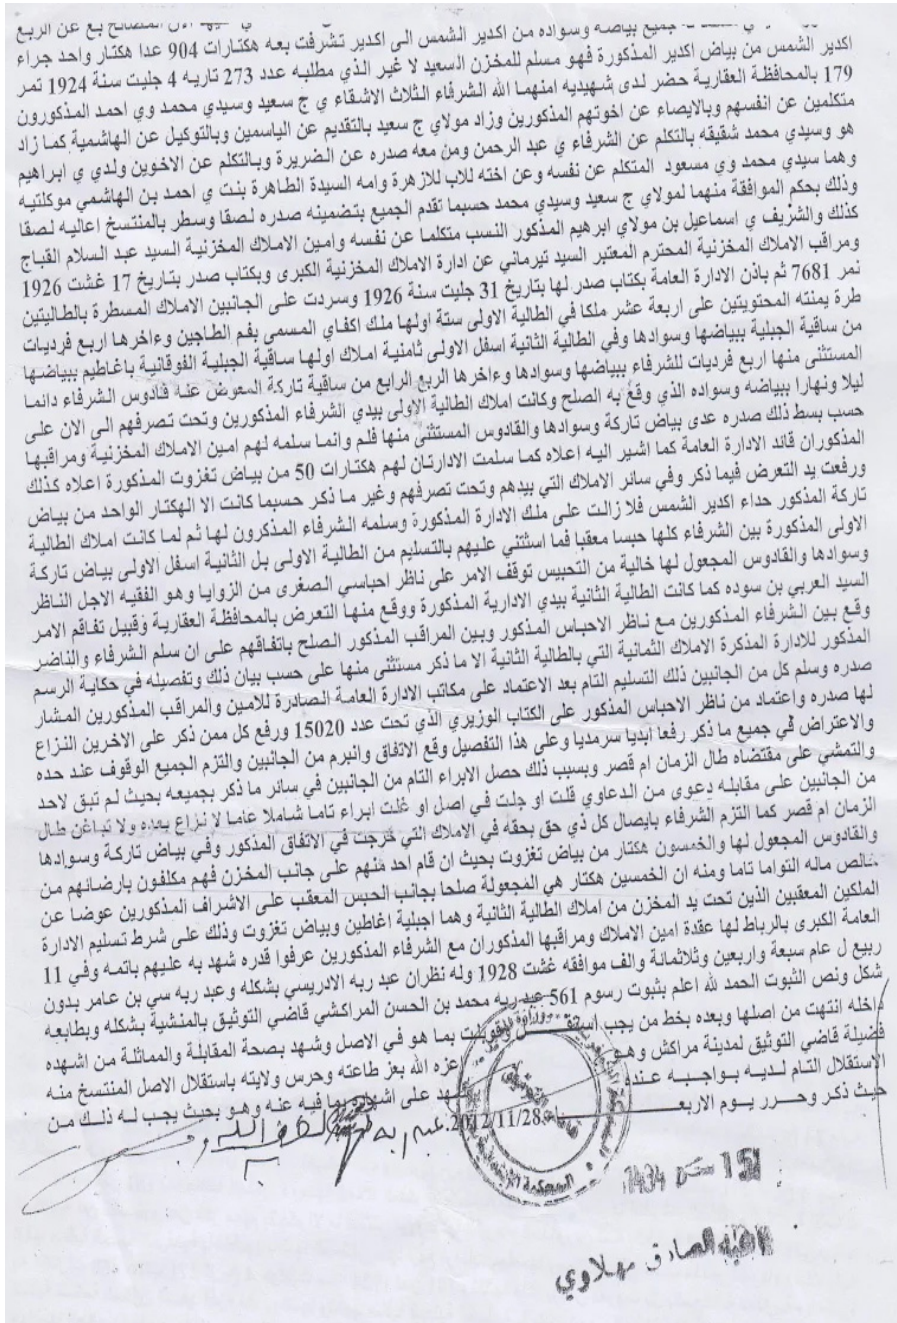 جميع بياضه وسواده من اكدير الشمس الى اكدير تشرفت بعه هكتارات 904 عدا هكتار واحد جراء
اكدير الشمس من بياض اكدير المذكورة فهو مسلم للمخزن السعيد لا غير الذي مطلبه عدد 273 تاريه 4 جليت سنة 1924 تمر
179 بالمحافظة العقارية حضر لدى شهيديه امنهما الله الشرفاء الثلاث الاشقاء ي ج سعيد وسيدي محمد وي احمد المذكورون
متكلمين عن انفسهم وبالايصاء عن اخوتهم المذكورين وزاد مولاي ج سعيد بالتقديم عن الياسمين وبالتوكيل عن الهاشمية كما زاد
هو وسيدي محمد شقيقه بالتكلم عن الشرفاء ي عبد الرحمن ومن معه صدره عن الضريرة وبالتكلم عن الاخوين ولدي ي ابراهيم
وهما سيدي محمد وي مسعود المتكلم عن نفسه وعن اخته للاب للازهرة وامه السيدة الطاهرة بنت ي احمد بن الهاشمي موكلتيه
وذلك بحكم الموافقة منهما لمولاي ج سعيد وسيدي محمد حسبما تقدم الجميع بتضمينه صدره لصقا وسطر بالمنتسخ اعاليه لصقا
كذلك والشريف ي اسماعيل بن مولاي ابرهيم المذكور النسب متكلما عن نفسه وامين الاملاك المخزنية السيد عبد السلام القباج
ومراقب الاملاك المخزنية المحترم المعتبر السيد تيرماني عن ادارة الاملاك المخزنية الكبرى وبكتاب صدر بتاريخ 17 غشت 1926
نمر 7681 ثم باذن الادارة العامة بكتاب صدر لها بتاريخ 31 جليت سنة 1926 وسردت على الجانبين الاملاك المسطرة بالطاليتين
طرة يمنته المحتويتين على اربعة عشر ملكا في الطالية الاولى ستة اولها ملك اكفاي المسمى بفم الطاجين وءاخرها اربع فرديات
من ساقية الجبلية ببياضها وسوادها وفي الطالية الثانية اسفل الاولى ثامنية املاك اولها ساقية الجبلية الفوقانية باغاطيم ببياضها
المستثنى منها اربع فرديات للشرفاء ببياضها وسوادها وءاخرها الربع الرابع من ساقية تاركة المعوض عنه قادوس الشرفاء دائما
ليلا ونهارا ببياضه وسواده الذي وقع به الصلح وكانت املاك الطالية الاولى بيدي الشرفاء المذكورين وتحت تصرفهم الى الان على
حسب بسط ذلك صدره عدى بياض تاركة وسوادها والقادوس المستثنى منها فلم وانما سلمه لهم امين الاملاك المخزنية ومراقبها
المذكوران قائد الادارة العامة كما اشير اليه اعلاه كما سلمت الادارتان لهم هكتارات 50 من بياض تغزوت المذكورة اعلاه كذلك
ورفعت يد التعرض فيما ذكر وفي سائر الاملاك التي بيدهم وتحت تصرفهم وغير ما ذكر حسبما كانت الا الهكتار الواحد من بياض
تاركة المذكور حداء اكدير الشمس فلا زالت على ملك الادارة المذكورة وسلمه الشرفاء المذكرون لها ثم لما كانت املاك الطالية
الاولى المذكورة بين الشرفاء كلها حبسا معقبا فما استثني عليهم بالتسليم من الطالية الاولى بل الثانية اسفل الاولى بياض تاركة
وسوادها والقادوس المجعول لها خالية من التحبيس توقف الامر على ناظر احباسي الصغرى من الزوايا وهو الفقيه الاجل الناظر
السيد العربي بن سوده كما كانت الطالية الثانية بيدي الادارية المذكورة ووقع منها التعرض بالمحافظة العقارية وقبيل تفاقم الامر
وقع بين الشرفاء المذكورين مع ناظر الاحباس المذكور وبين المراقب المذكور الصلح باتفاقهم على ان سلم الشرفاء والناضر
المذكور للادارة المذكرة الاملاك الثمانية التي بالطالية الثانية الا ما ذكر مستثنى منها على حسب بيان ذلك وتفصيله في حكاية الرسم
صدره وسلم كل من الجانبين ذلك التسليم التام بعد الاعتماد على مكاتب الادارة العامة الصادرة للامين والمراقب المذكورين المشار
لها صدره واعتماد من ناظر الاحباس المذكور على الكتاب الوزيري الذي تحت عدد 15020 ورفع كل ممن ذكر على الاخرين النزاع
والاعتراض في جميع ما ذكر رفعا ابديا سرمديا وعلى هذا التفصيل وقع الاتفاق وانبرم من الجانبين والتزم الجميع الوقوف عند حده
والتمشي على مقتضاه طال الزمان ام قصر وبسبب ذلك حصل الابراء التام من الجانبين في سائر ما ذكر بجميعه بحيث لم تبق لاحد
من الجانبين على مقابله دعوى من الدعاوي قلت او جلت في اصل او غلت ابراء تاما شاملا عاما لا نزاع بعده ولا تباغن طال
الزمان ام قصر كما التزم الشرفاء بايصال كل ذي حق بحقه في الاملاك التي خرجت في الاتفاق المذكور وفي بياض تاركة وسوادها
والقادوس المجعول لها والخمسون هكتار من بياض تغزوت بحيث ان قام احد منهم على جانب المخزن فهم مكلفون بارضائهم من
خالص ماله التواما تاما ومنه ان الخمسين هكتار هي المجعولة صلحا بجانب الحبس المعقب على الاشراف المذكورين عوضا عن
الملكين المعقبين الذين تحت يد المخزن من املاك الطالية الثانية وهما اجبلية اغاطين وبياض تغزوت وذلك على شرط تسليم الادارة
العامة الكبرى بالرباط لها عقدة امين الاملاك ومراقبها المذكوران مع الشرفاء المذكورين عرفوا قدره شهد به عليهم باتمه وفي 11
ربيع ل عام سبعة واربعين وثلاثمائة والف موافقه غشت 1928 وله نظران عبد ربه الادريسي بشكله وعبد ربه سي بن عامر بدون
شكل ونص الثبوت الحمد لله اعلم بثبوت رسوم 561 عبد ربه محمد بن الحسن المراكشي قاضي التوثيق بالمنشية بشكله وبطابعه
داخله انتهت من اصلها وبعده بخط من يجب بما هو في الاصل وشهد بصحة المقابلة والمماثلة من اشهده
فضيلة قاضي التوثيق لمدينة مراكش وهو عزه الله بعز طاعته وحرس ولايته باستقلال الاصل المنتسخ منه
الاستقلال التام لديه بواجبه عنده على اشهاده بما فيه عنه وهو بحيث يجب له ذلك من
حيث ذكر وحرر يوم الاربعاء 2012/11/28
15 1434
الصادق مهلاوي